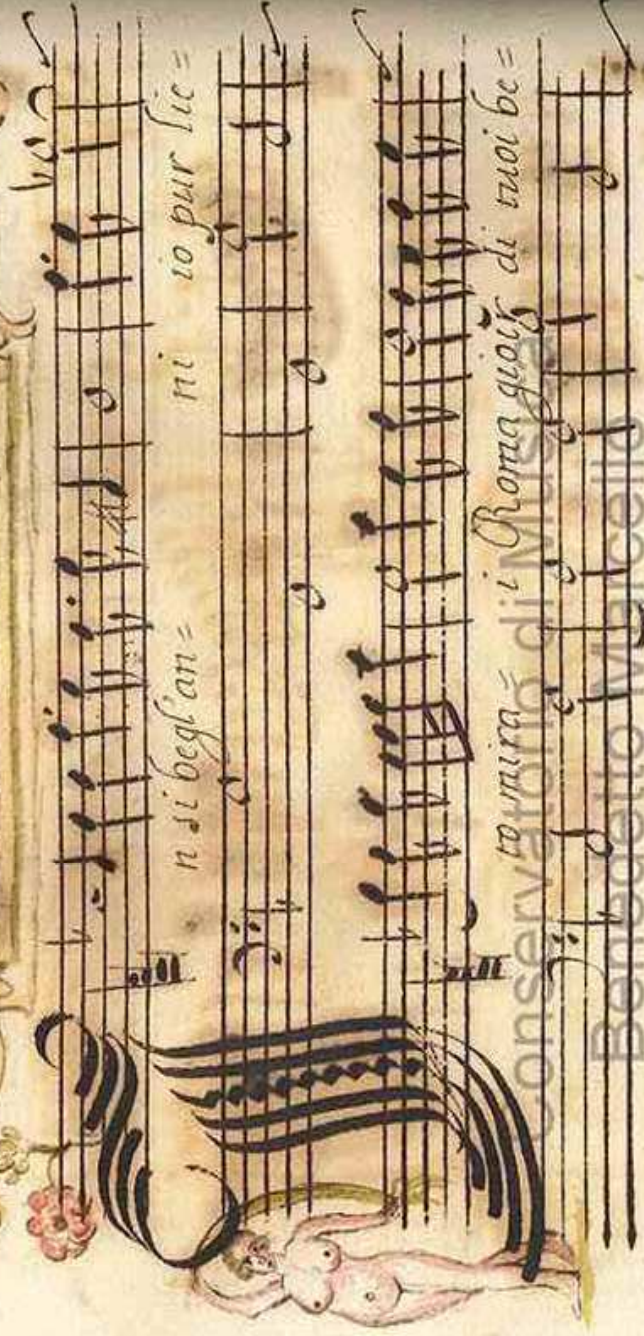 n si begl'an= ni io pur lie=
ro mira= i Roma gioir di tuoi be=
Conservatorio di Musica
Benedetto Marcello